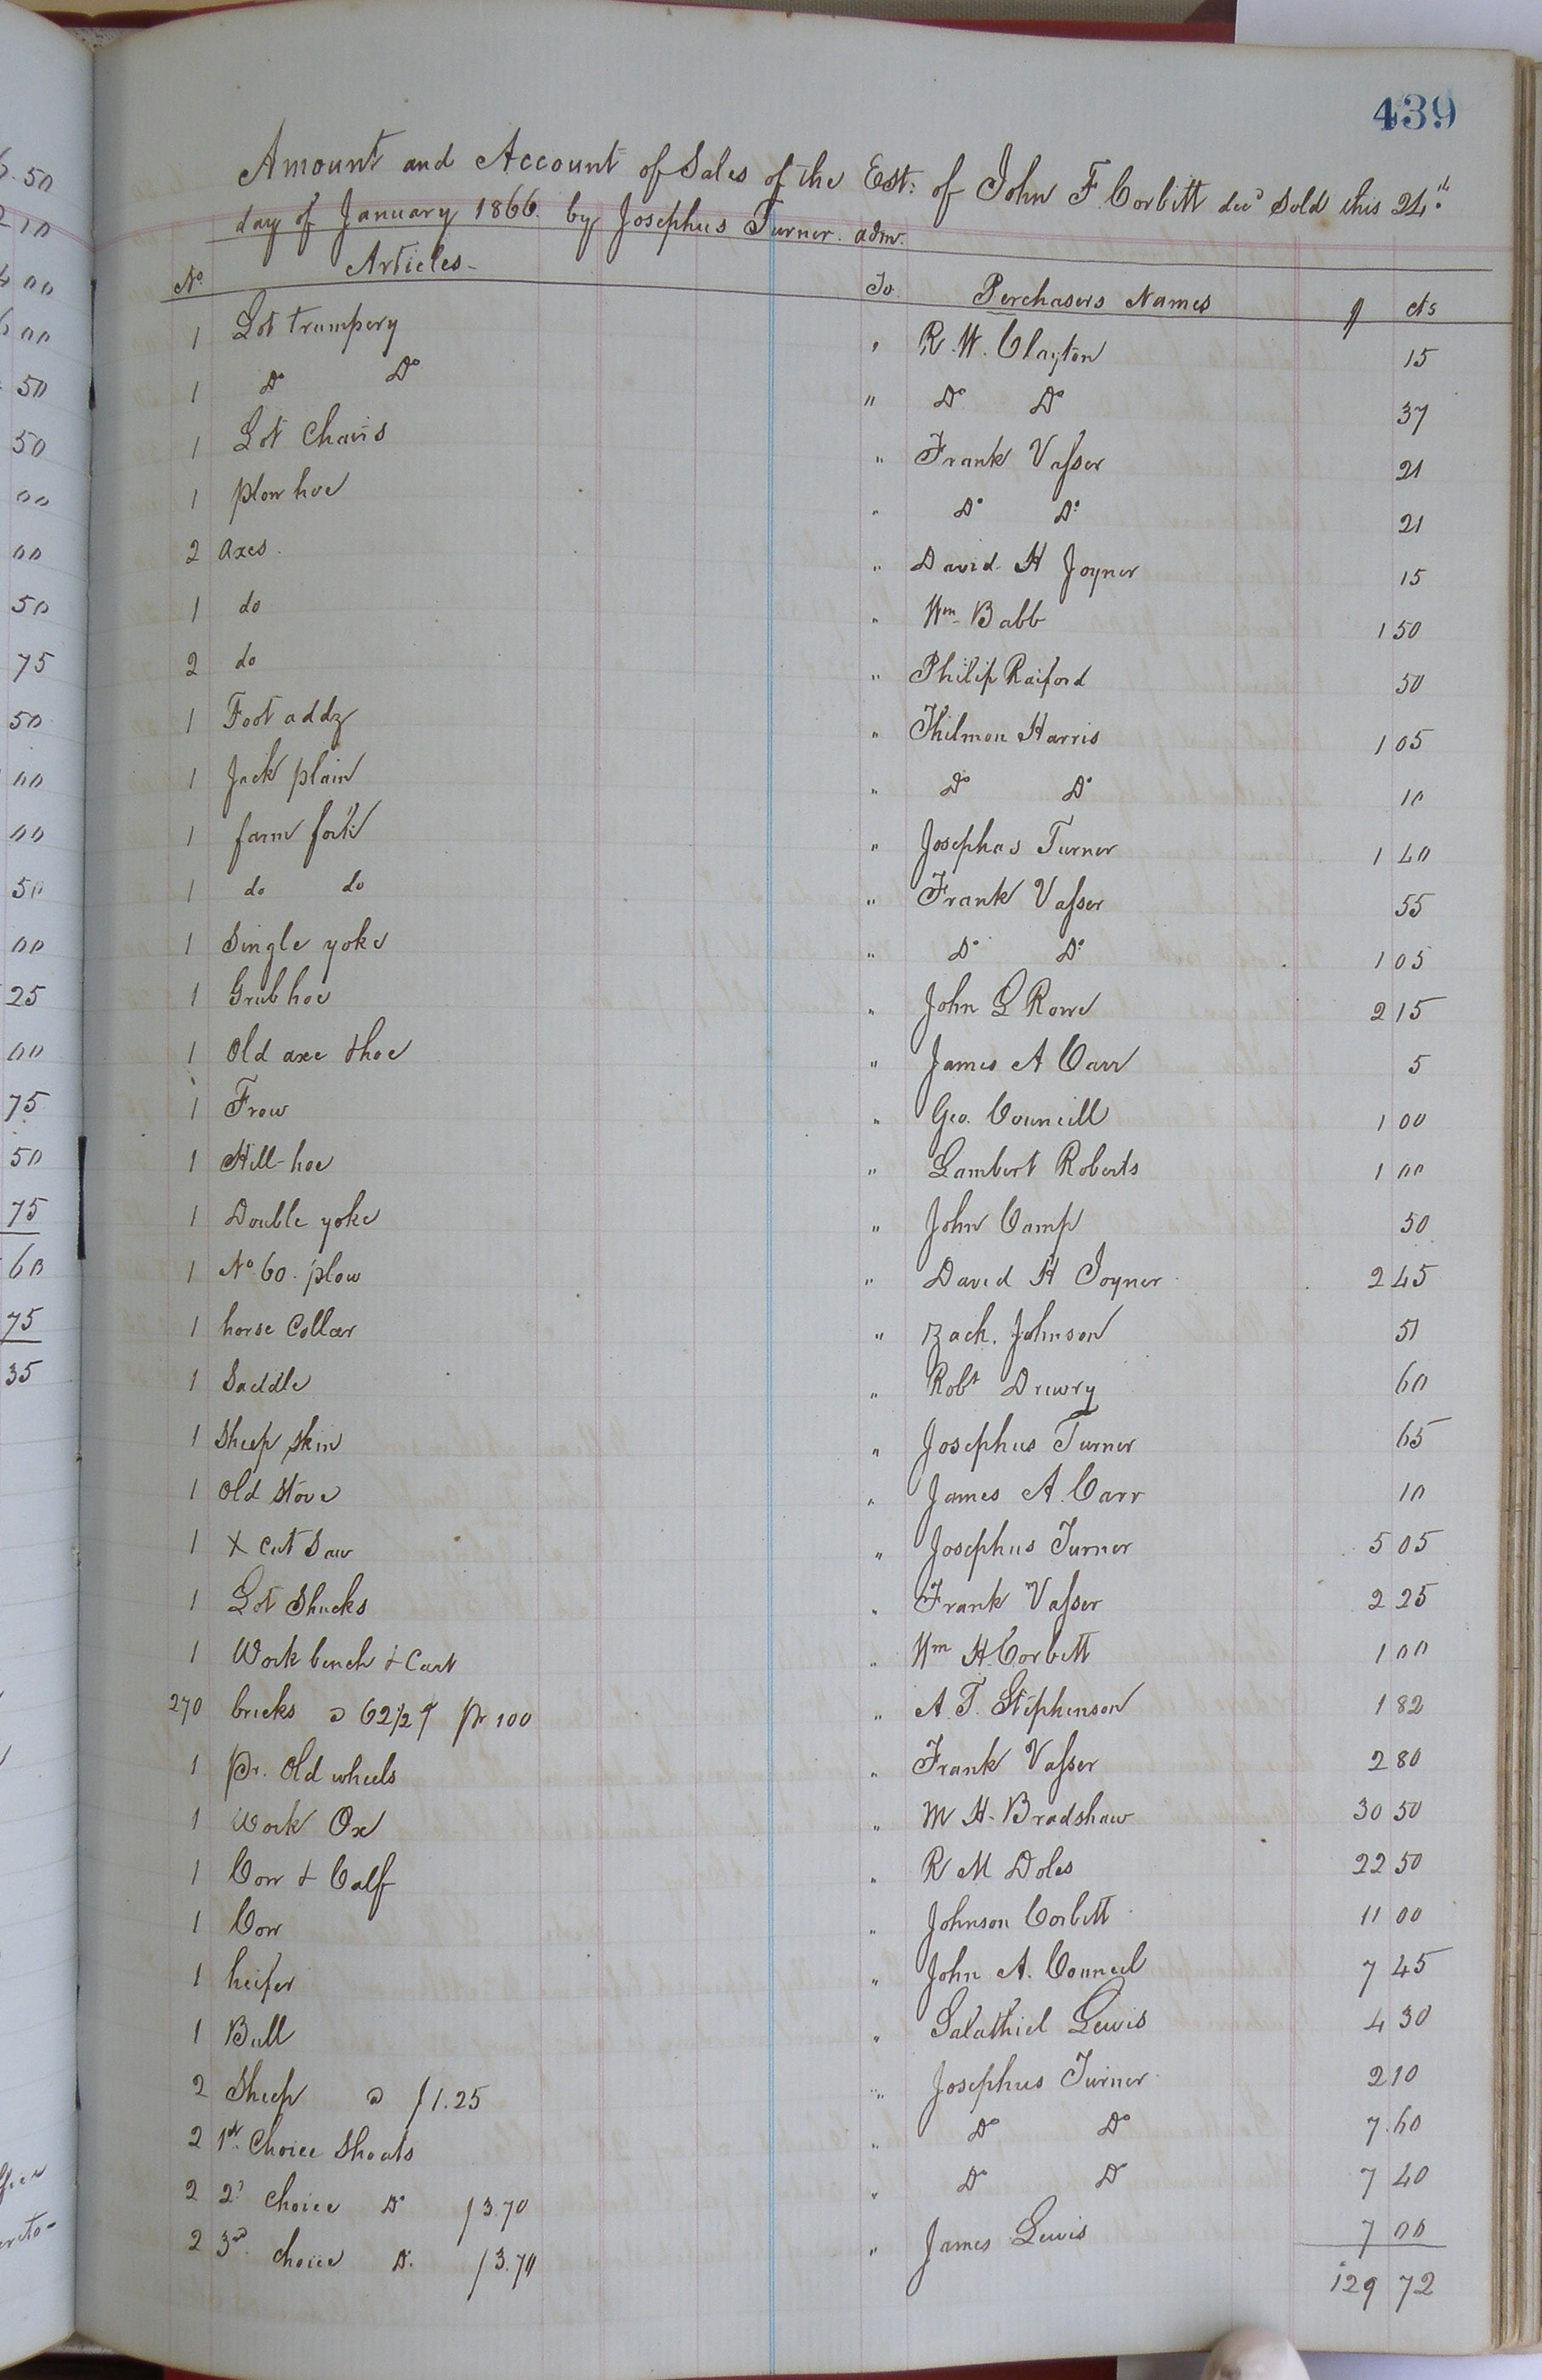 439
Amount and Account of Sales of the Est: of John F. Corbitt decd Sold this 24th
day of January 1866. by Josephus Turner. adm.
No Articles To Perchasers Names $ cts
1 Lot trumpery " R. W. Clayton 15
1 Do Do " Do Do 37
1 Lot Chairs " Frank Vasser 21
1 plow hoe " Do Do 21
2 axes " David H Joyner 15
1 do " Wm Babb 1 50
2 do " Philip Raiford 50
1 Foot addz " Thilmon Harris 1 05
1 Jack plain " Do Do 10
1 farm fork " Josephas Turner 1 40
1 do do " Frank Vasser 55
1 Single yoke " Do Do 1 05
1 Grub hoe " John G Rowe 2 15
1 Old axe & hoe " James A Carr 5
1 Frow " Geo. Councill 1 00
1 Hill-hoe " Lambert Roberts 1 00
1 Double yoke " John Camp 50
1 No 60. plow " David H Joyner 2 45
1 horse Collar " Zach. Johnson 51
1 Saddle " Robt Drewry 60
1 Sheep skin " Josephus Turner 65
1 Old stove " James A. Carr 10
1 X Cut Saw " Josephus Turner 5 05
1 Lot Shucks " Frank Vasser 2 25
1 Work bench & Cart " Wm H. Corbett 1 00
270 bricks @ 62 1/2 ¢ pr 100 " A. T. Stephenson 1 82
1 pr. Old wheels " Frank Vasser 2 80
1 Work Ox " M H. Bradshaw 30 50
1 Cow & Calf " R M Doles 22 50
1 Cow " Johnson Corbett 11 00
1 heifer " John A. Council 7 45
1 Bull " Salathiel Lewis 4 30
2 Sheep @ $1.25 " Josephus Turner 2 10
2 1st Choice Shoats " Do Do 7.60
2 2d choice Do $3.70 " Do Do 7 40
2 3rd choice Do. $3.70 " James Lewis 7 00
129 72